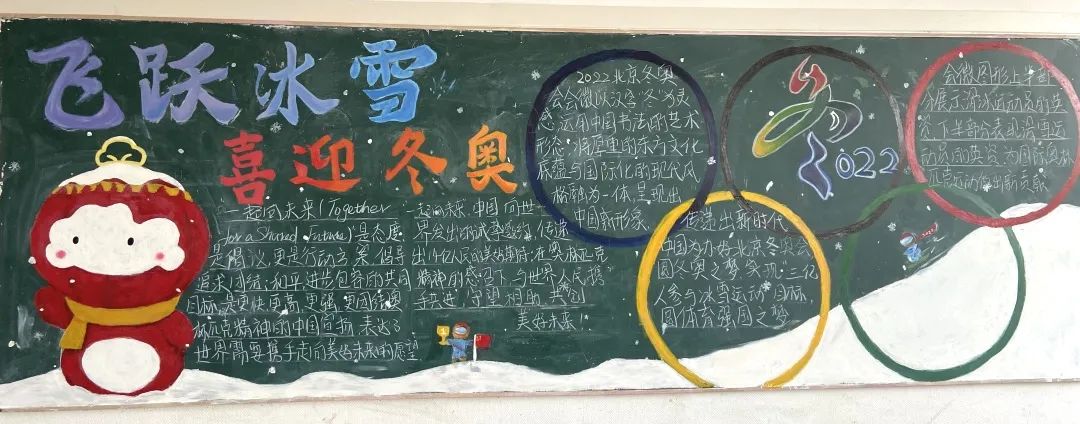 飞跃冰雪
喜迎冬奥
一起向未来(Together
for a Shared Future)是态度
是倡议,更是行动方案,倡导
追求团结、和平、进步包容的共同
目标,是更快更高、更强、更团结奥
林匹克精神的中国宣扬,表达了
世界需要携手走向美好未来的愿望
一起向未来,中国向世
界发出的诚挚邀约,传递
出14亿人民的美好期待:在奥林匹克
精神的感召下,与世界人民携
手共进、守望相助、共创
美好未来!
2022北京冬奥
会会徽以汉字"冬"为灵
感,运用中国书法的艺术
形态,将厚重的东方文化
底蕴与国际化的现代风
格融为一体,呈现出
中国新形象
传递出新时代
中国为办好北京冬奥会
圆冬奥之梦,实现"三亿
人参与冰雪运动"目标,
圆体育强国之梦
2022
会徽图形上半部
分展示滑冰运动员的造
型,下半部分表现滑雪运
动员的英姿